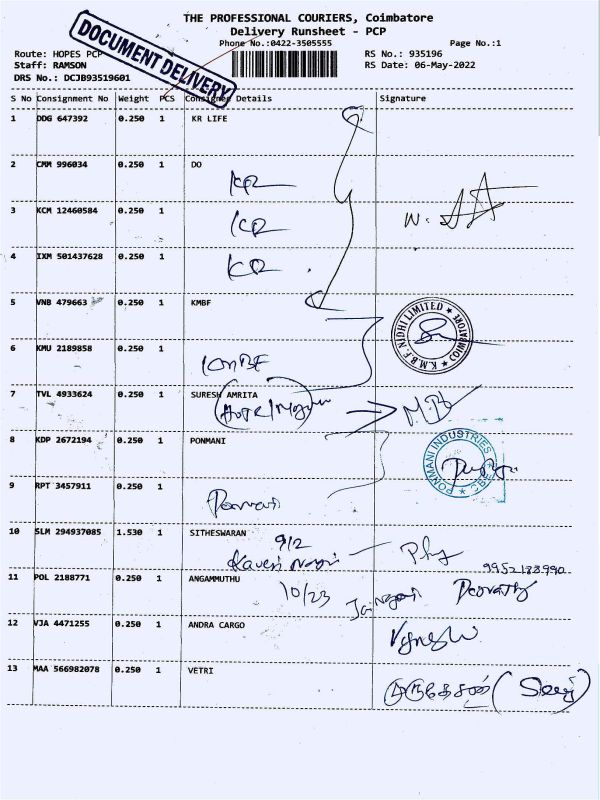 THE PROFESSIONAL COURIERS, Coimbatore
Delivery Runsheet - PCP
Phone No.:0422-3505555
Page No.:1
DOCUMENT DELIVERY
Route: HOPES PCP
RS No.: 935196
Staff: RAMSON
RS Date: 06-May-2022
DRS No.: DCJB93519601
S No Consignment No Weight PCS Consignee Details Signature
1 DDG 647392 0.250 1 KR LIFE
2 CMM 996034 0.250 1 DO
KR
3 KCM 12460584 0.250 1
KR
4 IXM 501437628 0.250 1
KR
5 VNB 479663 0.250 1 KMBF
K.M.B.F. NIDHI LIMITED COIMBATORE
6 KMU 2189858 0.250 1
KMBF
7 TVL 4933624 0.250 1 SURESH AMRITA
8 KDP 2672194 0.250 1 PONMANI
PONMANI INDUSTRIES CBE
9 RPT 3457911 0.250 1
Ponmani
10 SLM 294937085 1.530 1 SITHESWARAN
9/2
Kaveri Nagar
9952188990
11 POL 2188771 0.250 1 ANGAMMUTHU
10/23
12 VJA 4471255 0.250 1 ANDRA CARGO
13 MAA 566982078 0.250 1 VETRI
முருகேசன்